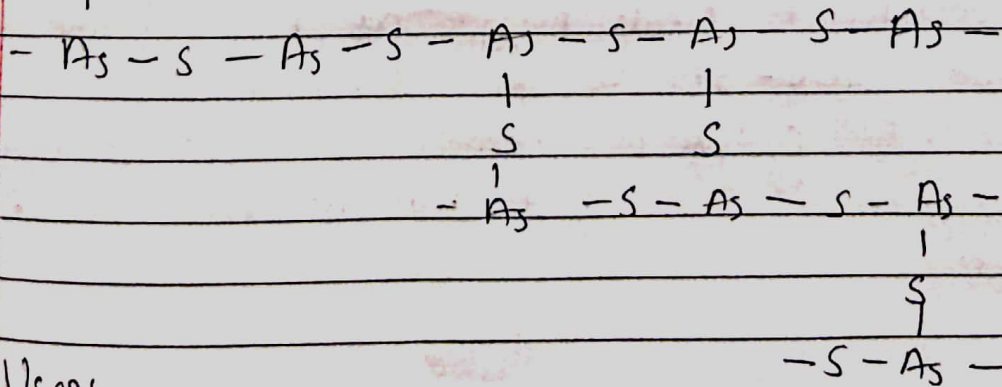 - As - S - As - S - As - S - As - S - As -
| |
S S
| 
- As - S - As - S - As -
|
S
|
- S - As -
Uses